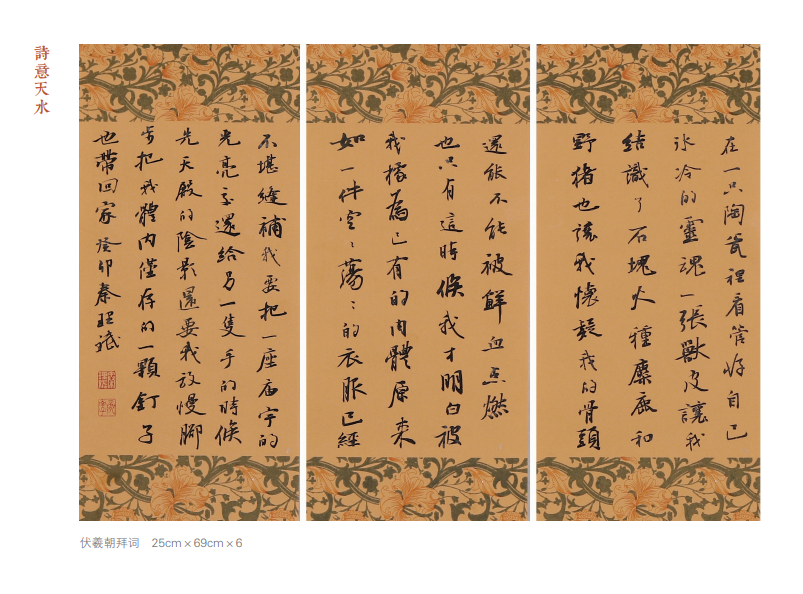 詩意天水
在一只陶瓷裡看管好自己
冰冷的靈魂一張獸皮讓我
結識了石塊火種麋鹿和
野豬也讓我懷疑我的骨頭
還能不能被鮮血点燃
也只有這時候我才明白被
我據為己有的肉體原来
如一件空:蕩:的衣服已經
不堪縫補我要把一座庙宇的
光亮交還給另一隻手的時候
先天殿的陰影還要我放慢腳
步把我體內僅存的一顆釘子
也帶回家 癸卯秦理斌
伏羲朝拜词 25cm×69cm×6